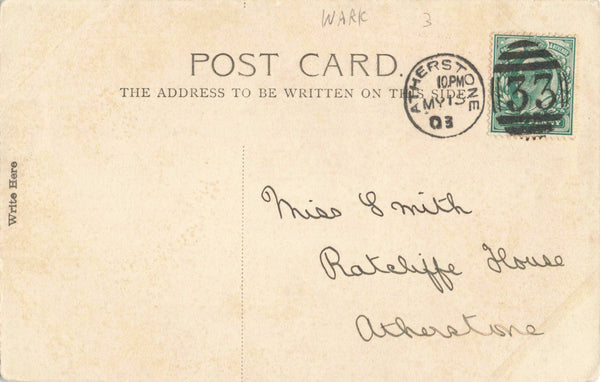 WARK 3
POST CARD.
THE ADDRESS TO BE WRITTEN ON THIS SIDE
ATHERSTONE
10.PM
MY 13
03
33
Write Here
Miss Smith
Ratcliffe House
Atherstone